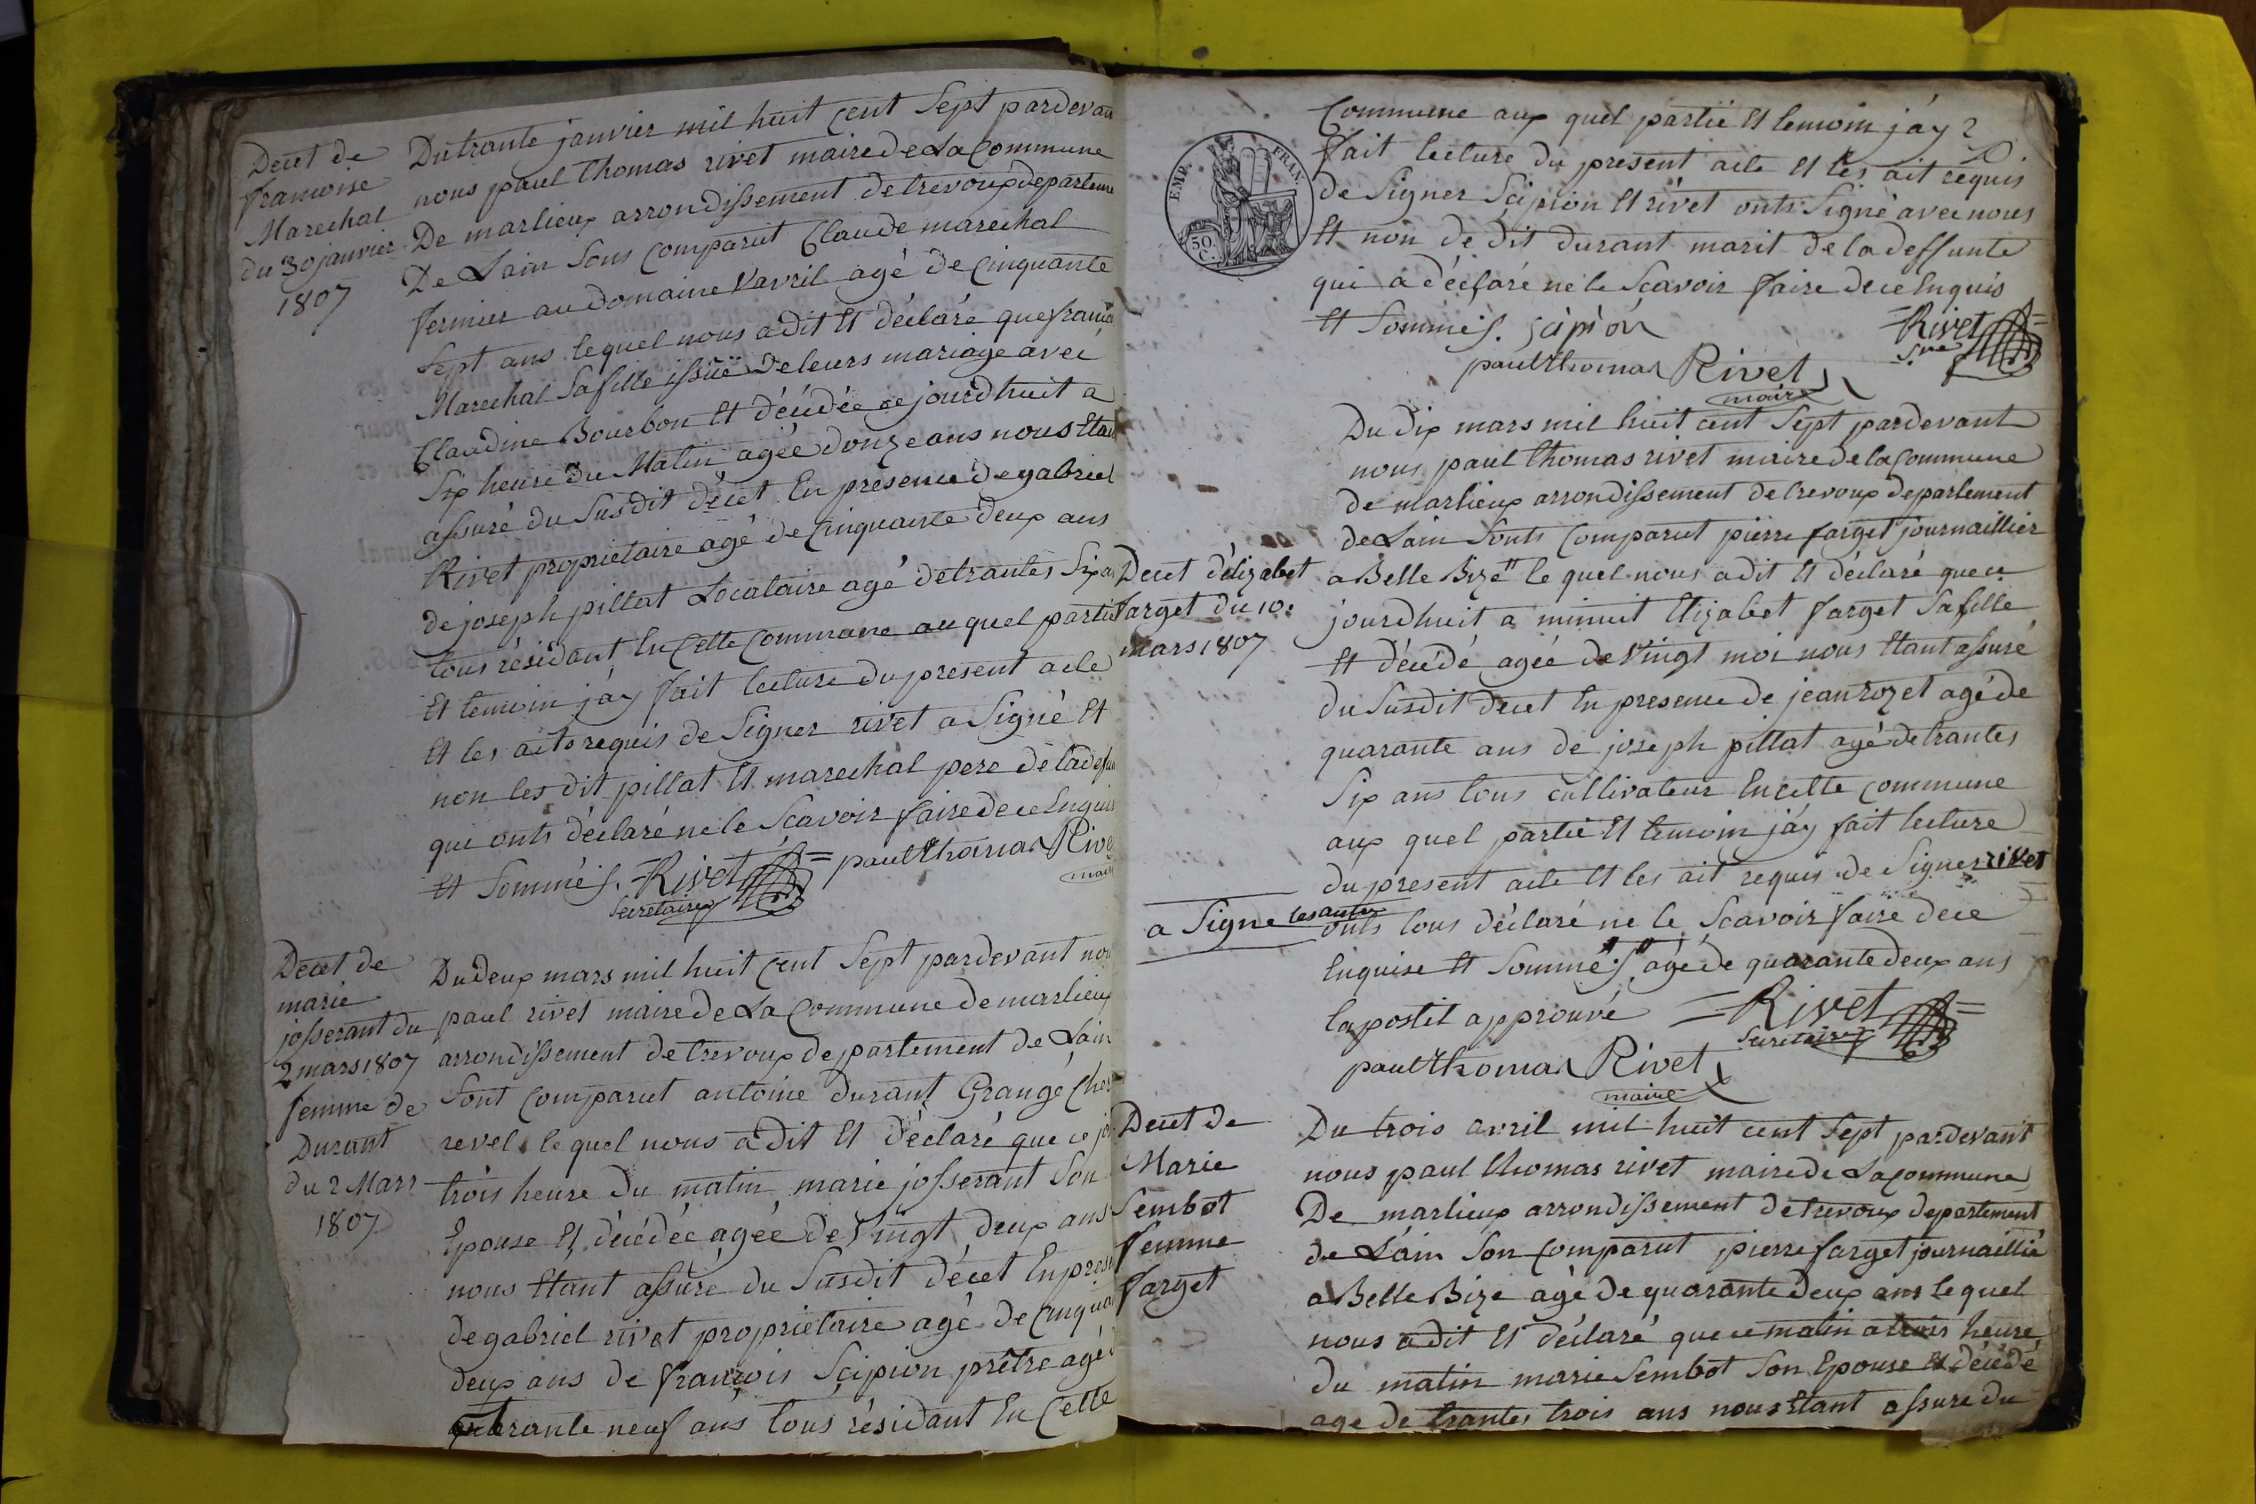 Decet de
francoise
Marechal
du 30 janvier
1807
Du trante janvier mil huit cent Sept pardevan
nous paul thomas rivet maire de La Commune
De marlieux arrondissement de trevoux departeme
De Lain Sons Comparut Claude marechal
fermier au Domaine Vavril agé de Cinquante
Sept ans lequel nous a dit Et déclaré que franco
Marechal Sa fille issüë De leurs mariage avec
Claudine Bourbon Et décédée ce jourdhuit a
Six heure du Matin agée douze ans nous Etan
assuré du Susdit décet En présence de gabriel
Rivet proprietaire agé de Cinquante deux ans
de joseph pillat Locataire agé de trantes Six a
tous résidant En Cette Commune au quel partie
Et temoin j'áy fait lecture du present acte
Et les aits requis de Signer rivet a Signé Et
non les dit pillat Et marechal pere de la def
qui onts déclaré ne le Scavoir faire de ce Enquis
Et Sommés. Rivet paul thomas Rive
Secretaire mair
Decet de
marie
josserant du
2 mars 1807
femme de
Durant
du 2 Mars
1807
Du deux mars mil huit Cent Sept pardevant nou
paul rivet maire de La Commune de marlieux
arrondissement de trevoux departement de Lain
Sont Comparut antoine durant Grangé Ches
revel lequel nous a dit Et déclaré que ce jo
trois heure du matin marie josserant Son
Epouse Et décédée agée de Vingt deux ans
nous Etant assûré du Susdit décet En prese
de gabriel rivet propriétaire agé de Cinqua
deux ans de francois Scipion prêtre agé d
quarante neuf ans tous résidant En Cette
EMP. FRAN.
50 C.
Commune aux quel partië Et temoin j'áy 2
fait lecture du present acte Et les ait requis
de Signer Scipion Et rivet onts Signé avec nous
Et non de dit durant marit de la deffunte
qui a déclaré ne le Scavoir faire de ce Enquis
Et Sommés. scipion Rivet
paul thomas Rivet Sre
maire
Du dix mars mil huit cent Sept pardevant
nous paul thomas rivet maire de la Commune
de marlieux arrondissement de trevoux departement
de Lain Sonts Comparut pierre farget journaillier
Decet d'elizabet
farget du 10:
mars 1807
a Belle Bize" le quel nous a dit Et déclaré que ce
jourdhuit a minuit Elizabet farget Sa fille
Et décédé agée de Vingt moi nous Etant assuré
du Susdit decet En presence de jean rozet agé de
quarante ans de joseph pillat agé de trantes
Six ans tous cultivateur En cette commune
aux quel partie Et temoin j'áy fait lecture
du present acte Et les ait requis de Signer rivet
a Signe les autre onts tous déclaré ne le Scavoir faire de ce
Enquise Et Sommés" agé de quarante deux ans
lapostit approuvé Rivet
Secretaire
paul thomas Rivet
maire
Decet de
Marie
Sembot
femme
farget
Du trois avril mil huit cent Sept pardevant
nous paul thomas rivet maire de La Commune
De marlieux arrondissement de trevoux departement
de Láin Son Comparut pierre farget journaillié
a Belle Bize agé de quarante deux ans le quel
nous a dit Et déclaré que ce matin a trois heure
du matin marie Sembot Son Epouse Et décédé
age de trantes trois ans nous Etant assure du